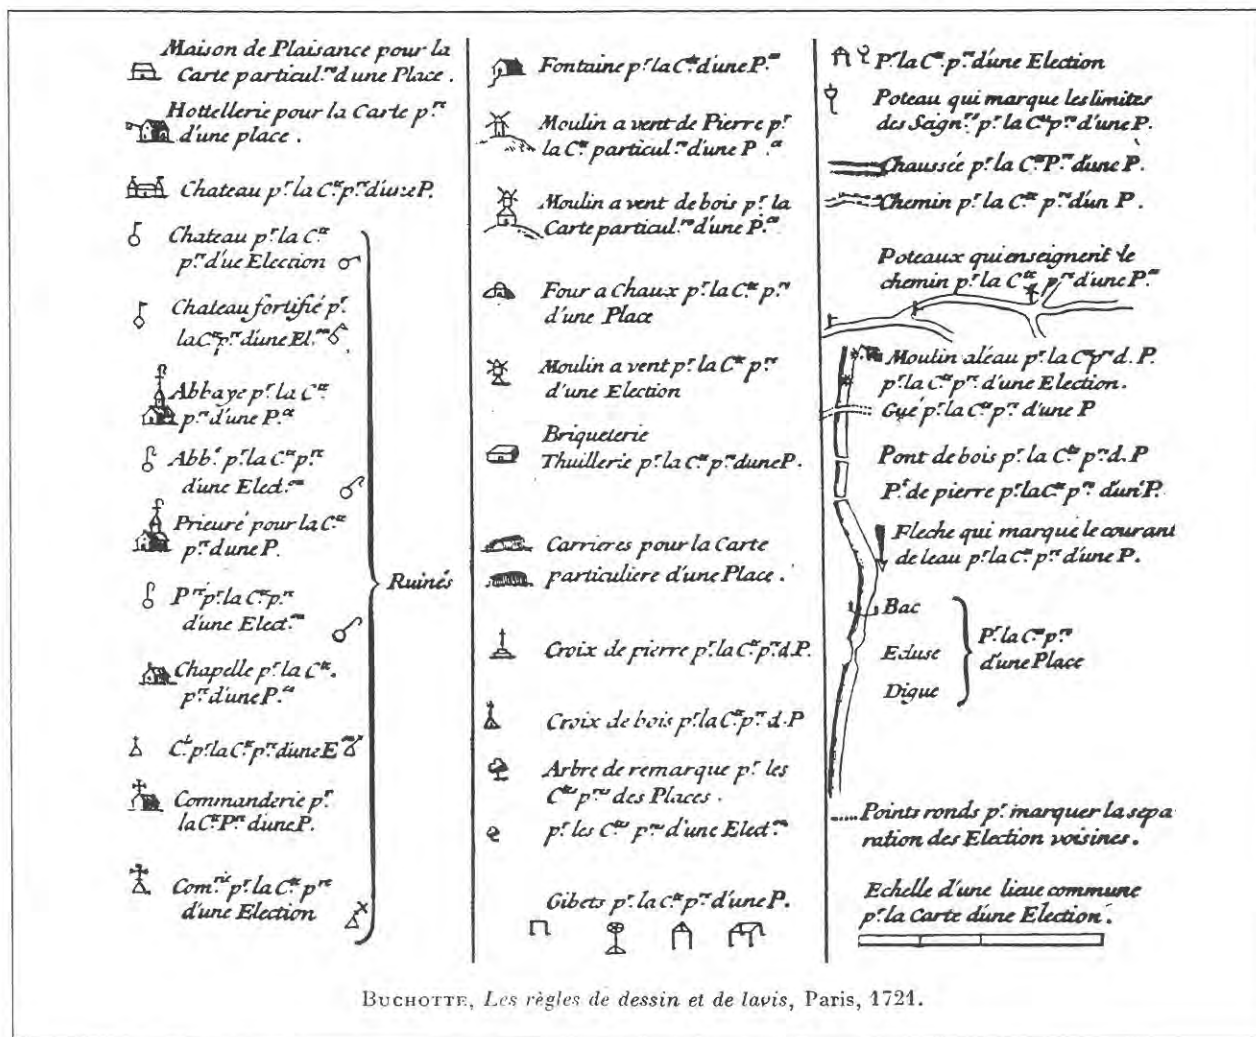 Maison de Plaisance pour la
Carte particul.re d'une Place.
Hottellerie pour la Carte p.re
d'une place.
Chateau p.r la C.te p.re d'une P.
Chateau p.r la C.te
p.re d'ue Election
Chateau fortifié p.r
la C.te p.re d'une El.on
Abbaye p.r la C.te
p.re d'une P.ce
Abb.e p.r la C.te p.re
d'une Elect.on
Prieuré pour la C.te
p.re d'une P.
P.ré p.r la C.te p.re
d'une Elect.on
Chapelle p.r la C.te
p.re d'une P.ce
p.r la C.te p.re d'une E
Commanderie p.r
la C.te P.re d'une P.
Com.rie p.r la C.te p.re
d'une Election
Ruinés
Fontaine p.r la C.te d'une P.ce
Moulin a vent de Pierre p.r
la C.te particul.re d'une P.ce
Moulin a vent de bois p.r la
Carte particul.re d'une P.ce
Four a Chaux p.r la C.te p.re
d'une Place
Moulin a vent p.r la C.te p.re
d'une Election
Briqueterie
Thuillerie p.r la C.te p.re dune P.
Carrieres pour la Carte
particuliere d'une Place.
Croix de pierre p.r la C.te p.re d. P.
Croix de bois p.r la C.te p.re d. P
Arbre de remarque p.r les
C.tes p.res des Places.
p.r les C.tes p.res d'une Elect.on
Gibets p.r la C.te p.re d'une P.
P.r la C.te p.re d'une Election
Poteau qui marque les limites
des Seign.ries p.r la C.te p.re d'une P.
Chaussée p.r la C.te P.re d'une P.
Chemin p.r la C.te p.re d'un P.
Poteaux qui enseignent le
chemin p.r la C.te p.re d'une P.ce
Moulin a léau p.r la C.te p.re d. P.
p.r la C.te p.re d'une Election.
Gué p.r la C.te p.re d'une P
Pont de bois p.r la C.te p.re d. P
P.t de pierre p.r la C.te p.re d'un P.
Fleche qui marque le courant
de leau p.r la C.te p.re d'une P.
Bac
Ecluse
Digue
P.r la C.te p.re
d'une Place
Points ronds p.r marquer la sepa
ration des Election voisines.
Echelle d'une lieue commune
p.r la Carte d'une Election.
BUCHOTTE, Les règles de dessin et de lavis, Paris, 1721.